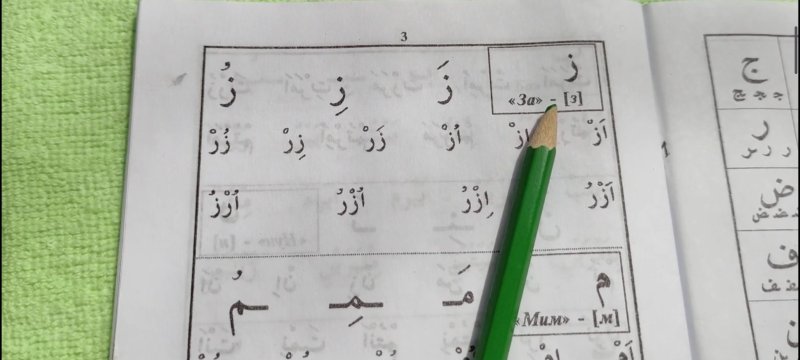 3
ز زَ زِ زُ
«За» - [з]
اَزْ اِزْ اُزْ زَرْ زِرْ زُرْ
اَزْرُ اِزْرُ اُزْرُ اُرْزُ
م مَـ ـمِـ ـمُ
«Мим» - [м]
ج
ججج
ر
ررر
1
ض
ضضض
ف